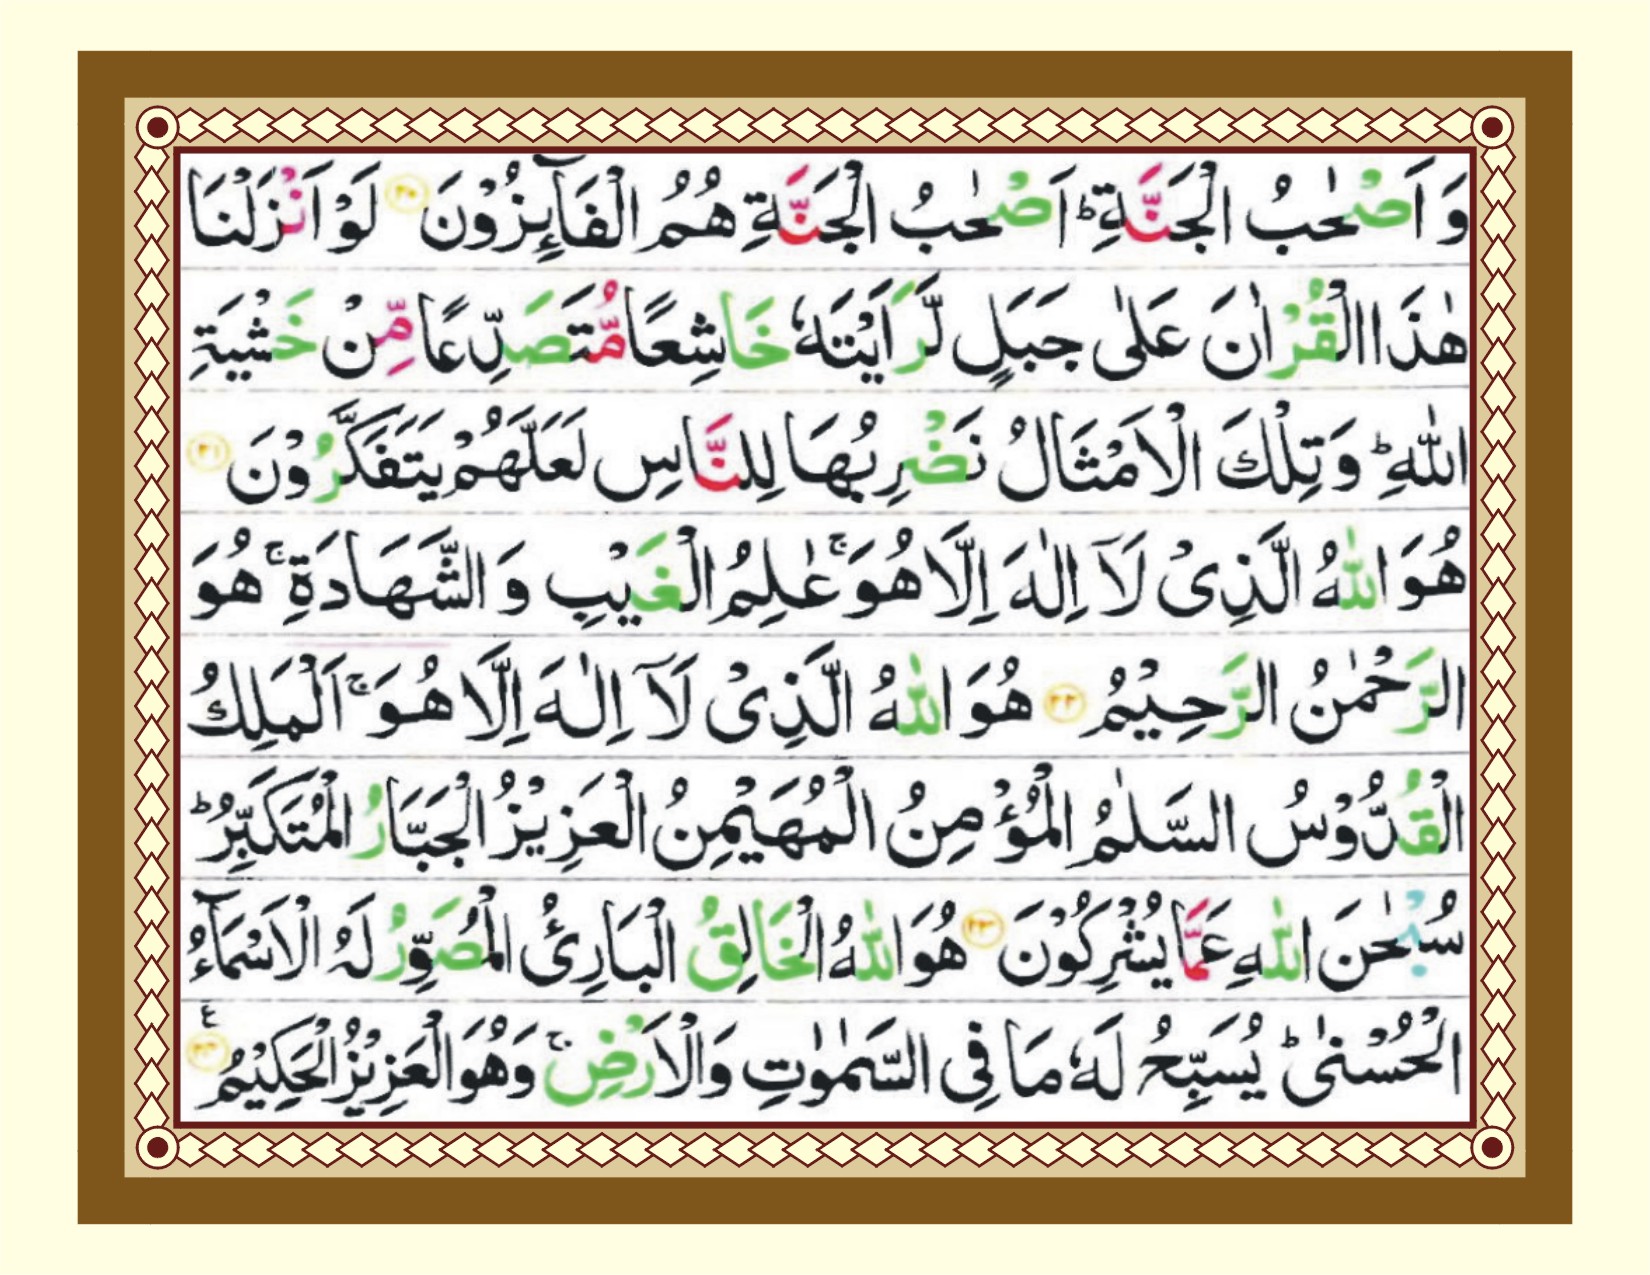 وَ اَصْحٰبُ الْجَنَّةِ ؕ اَصْحٰبُ الْجَنَّةِ هُمُ الْفَآىِٕزُوْنَ ۟۲۰ لَوْ اَنْزَلْنَا
هٰذَا الْقُرْاٰنَ عَلٰی جَبَلٍ لَّرَاَیْتَهٗ خَاشِعًا مُّتَصَدِّعًا مِّنْ خَشْیَةِ
اللّٰهِ ؕ وَ تِلْكَ الْاَمْثَالُ نَضْرِبُهَا لِلنَّاسِ لَعَلَّهُمْ یَتَفَكَّرُوْنَ ۟۲۱
هُوَ اللّٰهُ الَّذِیْ لَاۤ اِلٰهَ اِلَّا هُوَ ۚ عٰلِمُ الْغَیْبِ وَ الشَّهَادَةِ ۚ هُوَ
الرَّحْمٰنُ الرَّحِیْمُ ۟۲۲ هُوَ اللّٰهُ الَّذِیْ لَاۤ اِلٰهَ اِلَّا هُوَ ۚ اَلْمَلِكُ
الْقُدُّوْسُ السَّلٰمُ الْمُؤْمِنُ الْمُهَیْمِنُ الْعَزِیْزُ الْجَبَّارُ الْمُتَكَبِّرُ ؕ
سُبْحٰنَ اللّٰهِ عَمَّا یُشْرِكُوْنَ ۟۲۳ هُوَ اللّٰهُ الْخَالِقُ الْبَارِئُ الْمُصَوِّرُ لَهُ الْاَسْمَآءُ
الْحُسْنٰی ؕ یُسَبِّحُ لَهٗ مَا فِی السَّمٰوٰتِ وَ الْاَرْضِ ۚ وَ هُوَ الْعَزِیْزُ الْحَكِیْمُ ۟۲۴ ع